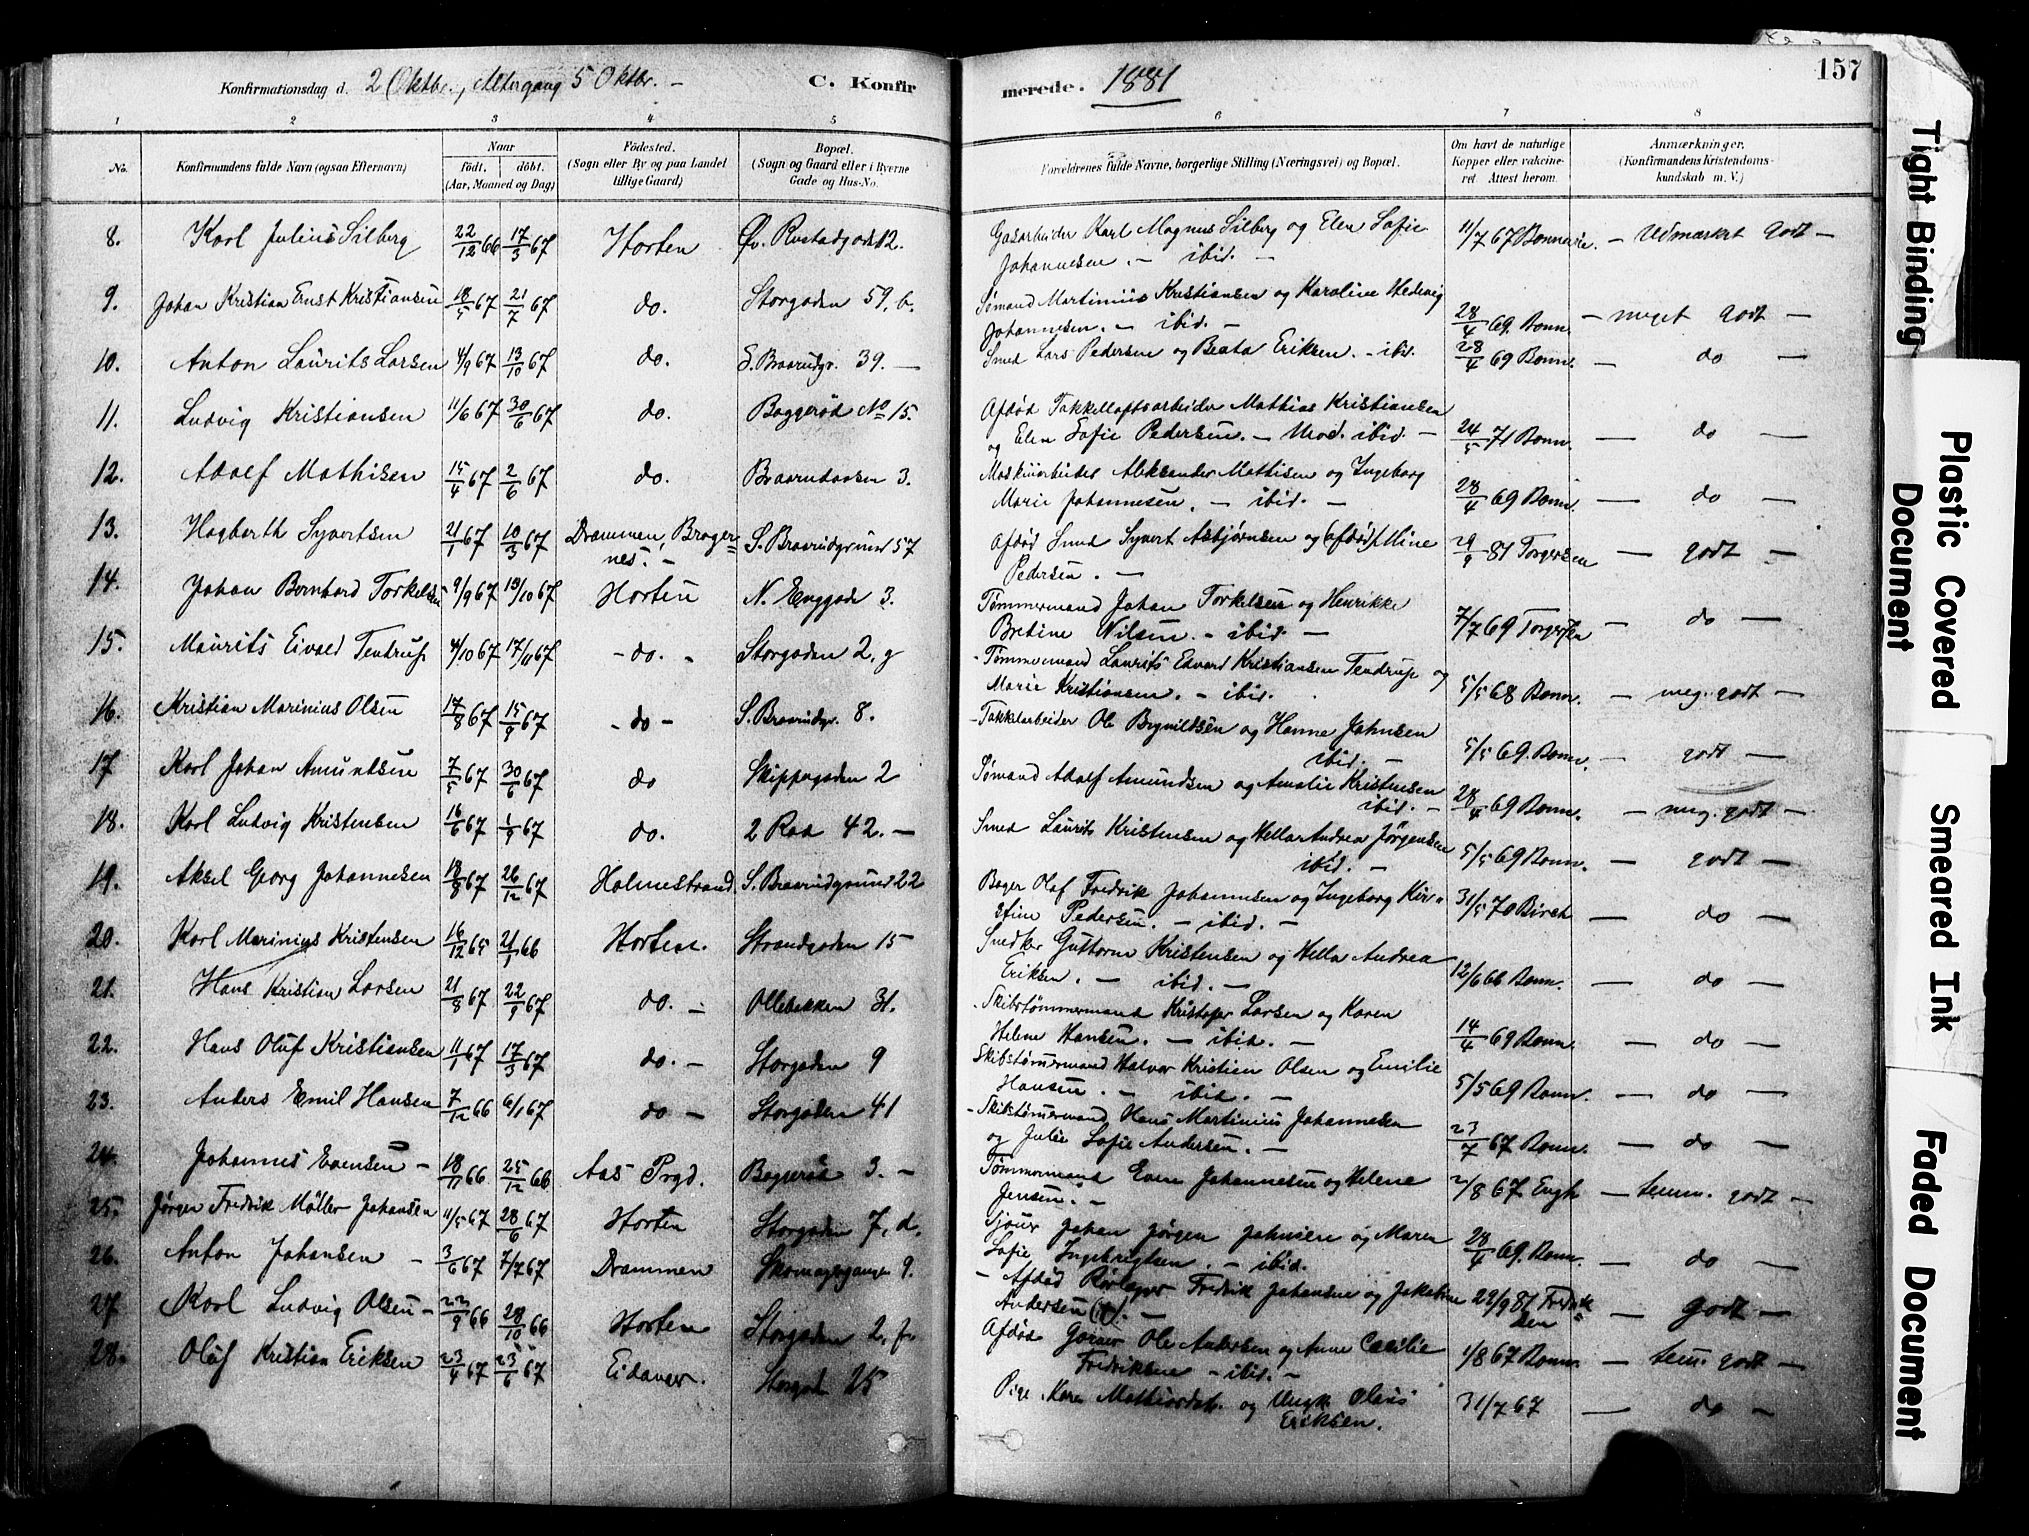 Konfirmationsdag d. 2 Oktbr., Altergang 5 Oktbr. – C. Konfir
merede. 1881
157
1 2 3 4 5 6 7 8
No. Konfirmandens fulde Navn (ogsaa Efternavn) Naar födt. döbt. (Aar, Maaned og Dag) Födested. (Sogn eller By og paa Landet tillige Gaard) Bopæl. (Sogn og Gaard eller i Byerne Gade og Hus-No. Forældrenes fulde Navne, borgerlige Stilling (Næringsvei) og Bopæl. Om havt de naturlige Kopper eller vakcineret. Attest herom. Anmærkninger. (Konfirmandens Kristendomskundskab m. V.)
8. Karl Julius Silberg 22/12 66 17/3 67 Horten Øv. Rustadgade 12. Gasarbeider Karl Magnus Silberg og Elen Sofie 11/7 67 Bonnevie – Udmærket godt –
Johannesen. – ibid. –
9. Johan Kristian Ernst Kristiansen 18/5 67 21/7 67 do. Storgaden 59, b. Sømand Martinius Kristiansen og Karoline Hedevig
Johannesen. – ibid. – 28/4 69. Bonn. – meget godt –
10. Anton Laurits Larsen 4/9 67 13/10 67 do. S. Braarudgr. 39. – Smed Lars Pedersen og Beata Eriksen. – ibid. 28/4 69 Bonn. – do –
11. Ludvig Kristiansen 11/6 67 30/6 67 do. Baggerød No 15. Afdød Takkelloftsarbeider Mathias Kristiansen
og Elen Sofie Pedersen. – ibid. – 24/5 71 Bonn. – do –
12. Adolf Mathisen 15/4 67 2/6 67 do. Braarudaasen 3. Maskinarbeider Aleksander Mathisen og Ingeborg
Marie Johannesen. – ibid. – 28/4 69 Bonn. – do –
13. Hagbarth Syvertsen 21/1 67 10/3 67 Drammen, Bragernes. – S. Braarudgrund 57 Afdød Smed Syvert Asbjørnsen og (afdød) Mine
Pedersen. – 29/9 81 Torgersen – godt –
14. Johan Bernhard Torkelsen 9/9 67 13/10 67 Horten N. Enggade 3. Tømmermand Johan Torkelsen og Henrikke
Bretine Nilsen. – ibid. – 7/7 69 Torgersen – do –
15. Maurits Eivald Tentrup 4/10 67 17/11 67 – do. – Storgaden 2, g – Tømmermand Laurits Edvard Kristiansen Tendrup og
Marie Kristiansen. – ibid. 5/5 68 Bonn. – meg. godt –
16. Kristian Marinius Olsen 17/8 67 15/9 67 – do – S. Braarudgr. 8. – Takkelarbeider Ole Brynildsen og Hanne Jahnsen
ibid. – 5/5 69. Bonn. – godt –
17 Karl Johan Amundsen 7/5 67 30/6 67 do Skippergaden 2 Sømand Adolf Amundsen og Amalie Kristensen
ibid. – 28/4 69 Bonn. – meg. godt –
18. Karl Ludvig Kristensen 16/6 67 1/9 67 do. 2 Rad 42. – Smed Laurits Kristensen og Hella Andrea Jørgensen
ibid. – 5/5 69 Bonn. – godt –
19. Aksel Georg Johannesen 18/8 67 26/12 67 Holmestrand. S. Braarudgrund 22 Bager Olaf Fredrik Johannesen og Ingeborg Kirstine
Pedersen. – ibid. – 31/5 70 Birch – do –
20. Karl Marinius Kristensen 16/12 65 21/1 66 Horten. Strandgaden 15 Snedker Guttorm Kristensen og Hella Andrea
Eriksen. – ibid. – 12/6 66 Bonn. – do –
21. Hans Kristian Larsen 21/8 67 22/9 67 do. – Ollebakken 31. – Skibstømmermand Kristofer Larsen og Karen
Helene Hansen. – ibid. – 14/4 69 Bonn. – do –
22. Hans Oluf Kristiansen 11/1 67 17/3 67 do. – Storgaden 9 Skibstømmermand Halvor Kristien Olsen og Emilie
Hansen. – ibid. – 5/5 69 Bonn. – do –
23. Anders Emil Hansen 7/12 66 6/1 67 do – Storgaden 41 – Skibstømmermand Hans Martinius Johannesen
og Julie Sofie Andersen. – 23/7 67 Bonn. – do –
24. Johannes Evensen – 18/11 66 25/12 66 Aas Prgd. Baggerød 3. – Tømmermand Even Johannesen og Helene
Jensen. – 2/8 67 Engh – temm. godt –
25. Jørgen Fredrik Møller Johansen 11/5 67 28/6 67 Horten Storgaden 7, d. Sjouer Johan Jørgen Johnsen og Maren
Sofie Ingebrigtsen. – ibid. 28/4 69. Bonn. – do –
26. Anton Johansen – 3/6 67 7/7 67 Drammen Skomagergangen 9. – Afdød Fredrik Johansen og Jakobine
Andersen (†). – 29/9 81 Fredriksen – godt –
27 Karl Ludvig Olsen – 22/9 66 28/10 66 Horten Storgaden 2, f. Afdød Garver Ole Andersen og Anne Cecilie
Fredriksen – ibid. – 1/8 67 Bonn. – tem. godt –
28. Oluf Kristian Eriksen 23/4 67 23/6 67 Eidanger. Storgad 25 Pige Karen Mathisdat. og Ungk. Olaus
Eriksen. 31/7 67 – do –
Tight Binding
Plastic Covered Document
Smeared Ink
Faded Document